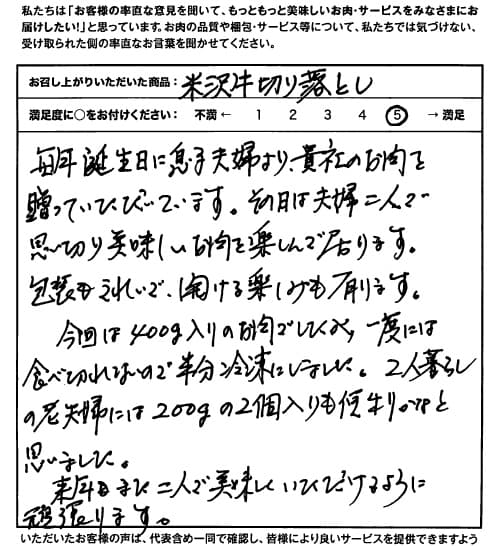 私たちは「お客様の率直な意見を聞いて、もっともっと美味しいお肉・サービスをみなさまにお
届けしたい!」と思っています。お肉の品質や梱包・サービス等について、私たちでは気づけない、
受け取られた側の率直なお言葉を聞かせてください。
お召し上がりいただいた商品: 米沢牛切り落とし
満足度に○をお付けください: 不満 ← 1 2 3 4 5 → 満足
毎年誕生日に息子夫婦より、貴社のお肉を
贈っていただいています。その日は夫婦二人で
思い切り美味しいお肉を楽しんで居ります。
包装もきれいで、開ける楽しみも有ります。
今回は400g入りのお肉でしたが、一度には
食べ切れないので半分冷凍にしました。2人暮らし
の老夫婦には200gの2個入りも便利かと
思いました。
来年もまた二人で美味しくいただけるように
頑張ります。
いただいたお客様の声は、代表含め一同で確認し、皆様により良いサービスを提供できますよう